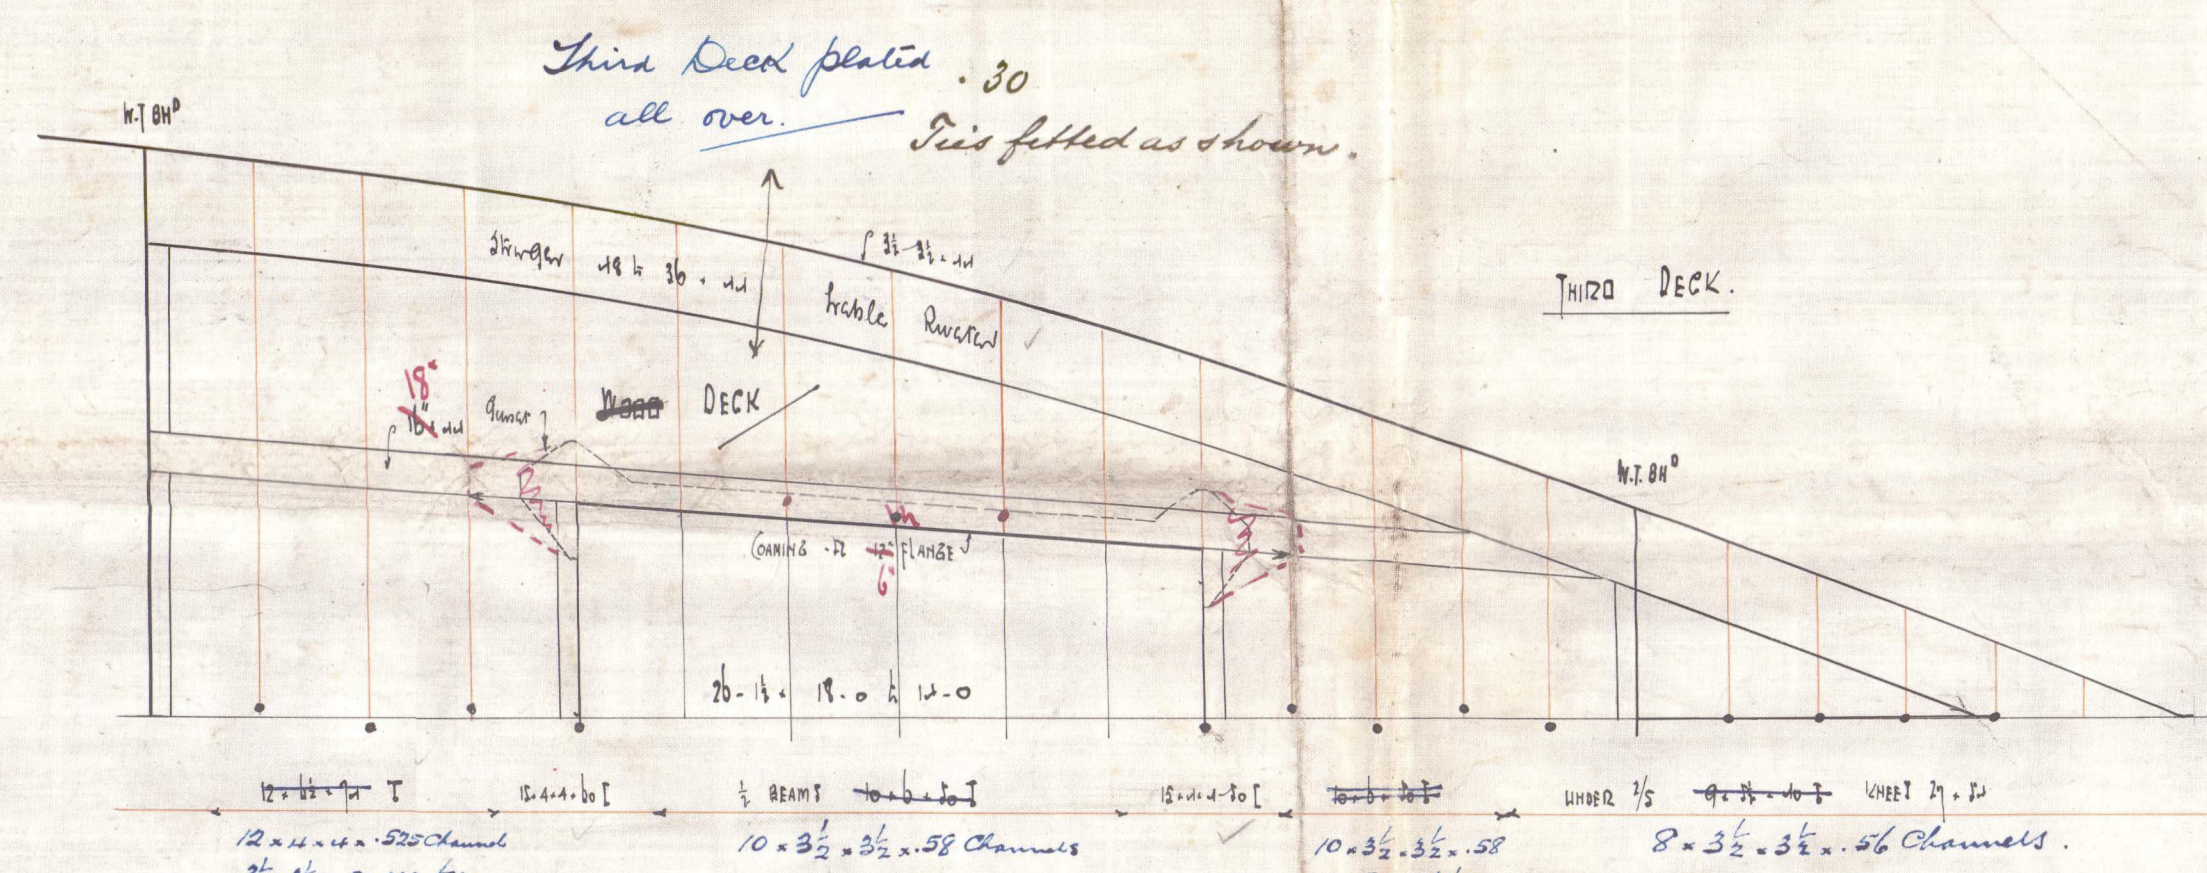 Third Deck plated
all over.
.30
Ties fitted as shown.
W.T BHD
Stringer 48 to 36 × .44
3½ 3½ × .44
treble Riveted
THIRD DECK.
18"
16" × .44
Gusset
WOOD DECK
W.T. BHD
COAMING 12" FLANGE
6"
26 - 1½ × 18 - 0 to 14 - 0
12 × 6½ × I
15 × 4 × 4 × 60 [
½ BEAMS 10 × 6 × 50 I
15 × 4 × 4 50 [
10 × 6 × 50 I
UNDER 2/5
KNEES 27 × 54
12 × 4 × 4 × .525 Channel
10 × 3½ × 3½ × .58 Channels
10 × 3½ × 3½ × .58
8 × 3½ × 3½ × .56 Channels.